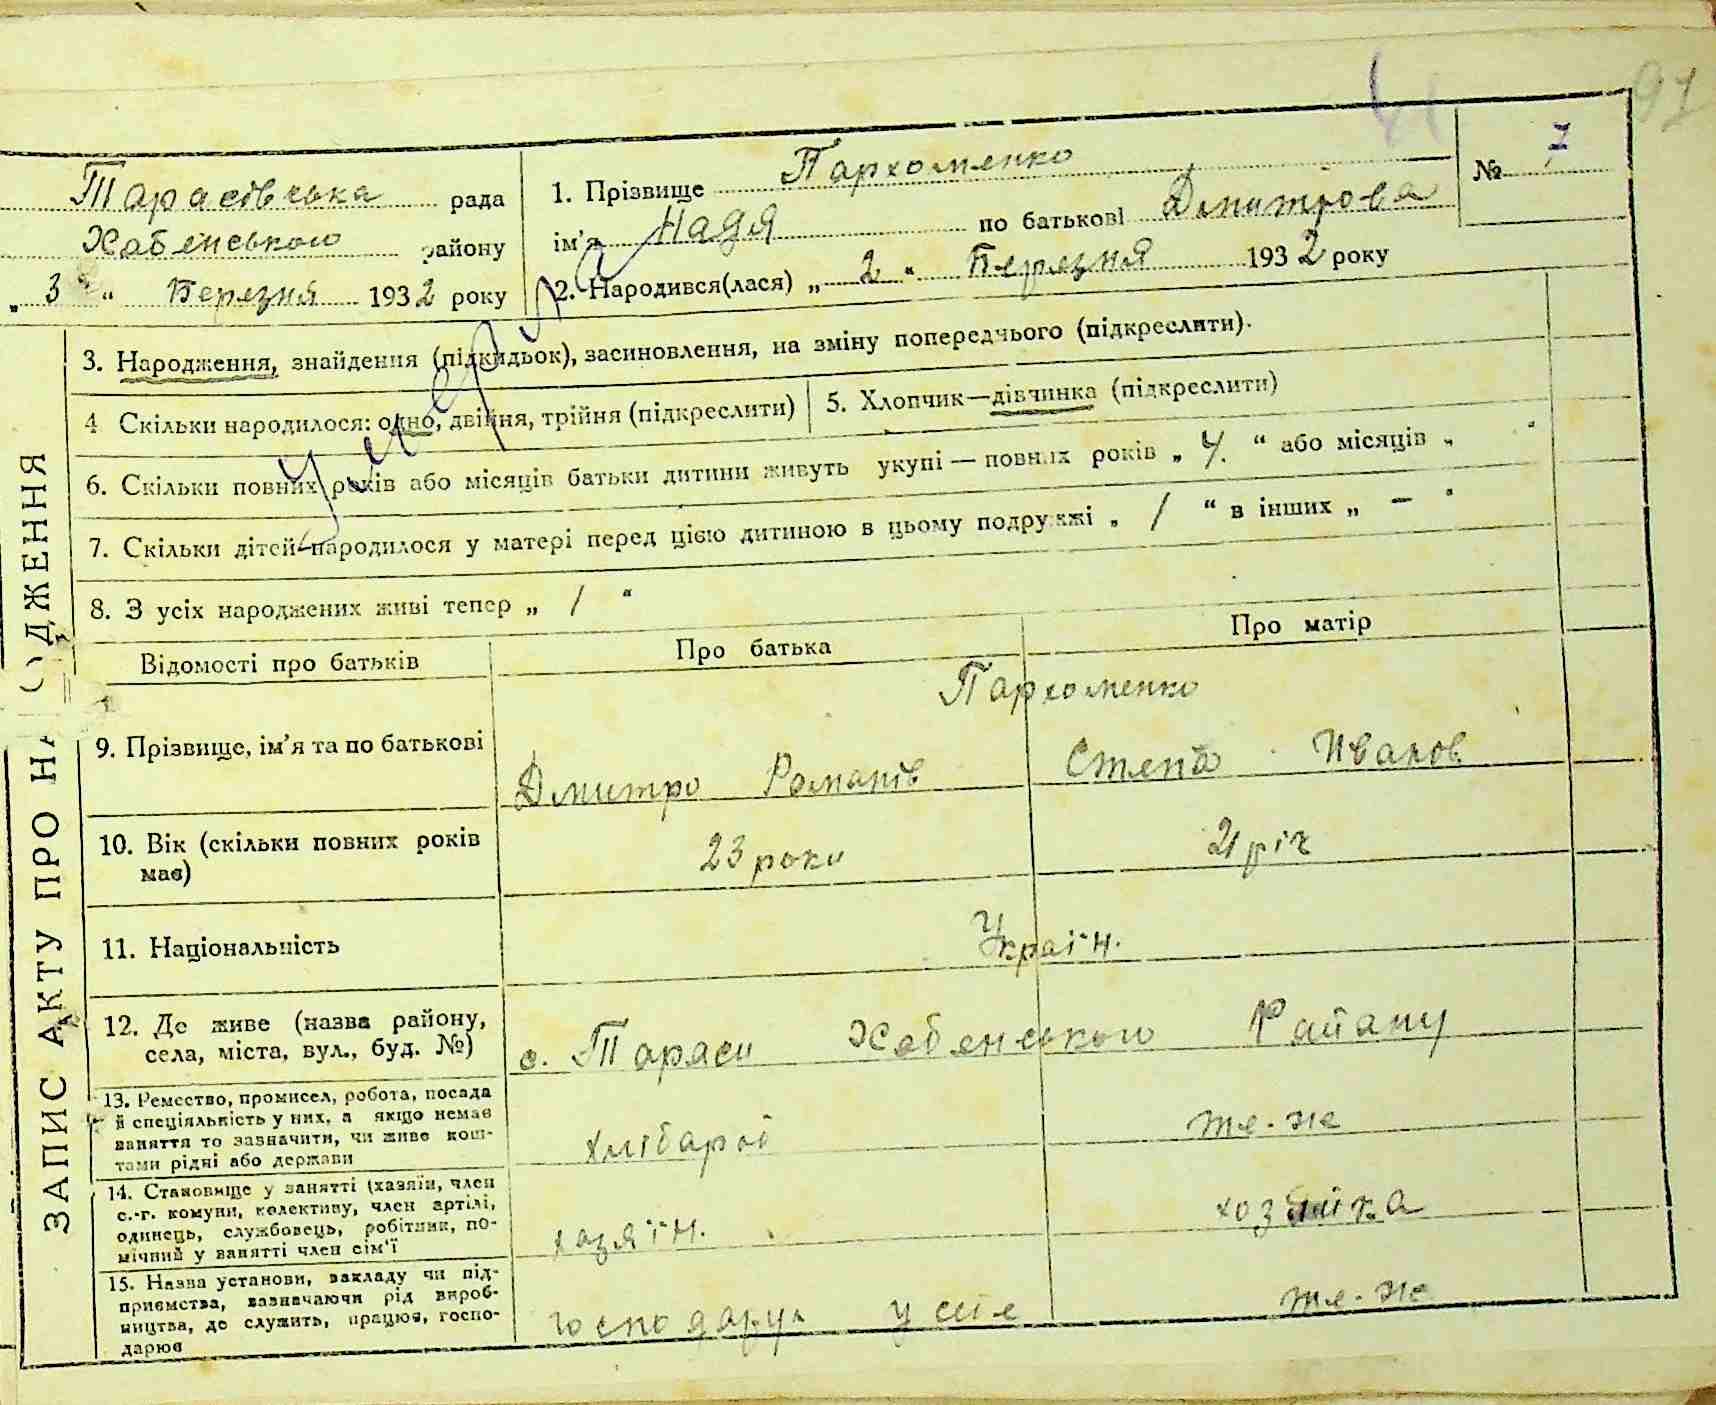 91
№ 7
Тарасівська рада
Хабенського району
„ 3 “ Березня 1932 року
1. Прізвище Пархоменко
ім'я Надя по батькові Дмитрова
2. Народився(лася) „ 2 “ Березня 1932 року
умерла
ЗАПИС АКТУ ПРО НА ОДЖЕННЯ
3. Народження, знайдення (підкидьок), засиновлення, на зміну попереднього (підкреслити).
4 Скільки народилося: одно, двійня, трійня (підкреслити)
5. Хлопчик—дівчинка (підкреслити)
6. Скільки повних років або місяців батьки дитини живуть укупі — повних років „ 4. “ або місяців „
7. Скільки дітей народилося у матері перед цією дитиною в цьому подружжі „ 1 “ в інших „ — “
8. З усіх народжених живі тепер „ 1 “
Відомості про батьків
Про батька
Про матір
Пархоменко
9. Прізвище, ім'я та по батькові
Дмитро Романів
Степа Иванов
10. Вік (скільки повних років
має)
23 роки
21 річ
11. Національність
Україн.
12. Де живе (назва району,
села, міста, вул., буд. №)
с. Тараси Хабенського Району
13. Ремество, промисел, робота, посада
й спеціяльність у них, а якщо немає
заняття то зазначити, чи живе кош-
тами рідні або держави
хлібароб
те-же
14. Становище у занятті (хазяїн, член
с.-г. комуни, колективу, член артілі,
одинець, службовець, робітник, по-
мічний у занятті член сім'ї
хазяїн.
хозяйка
15. Назва установи, закладу чи під-
приємства, зазначаючи рід вироб-
ництва, де служить, працює, госпо-
дарює
господарує у селе
те-же